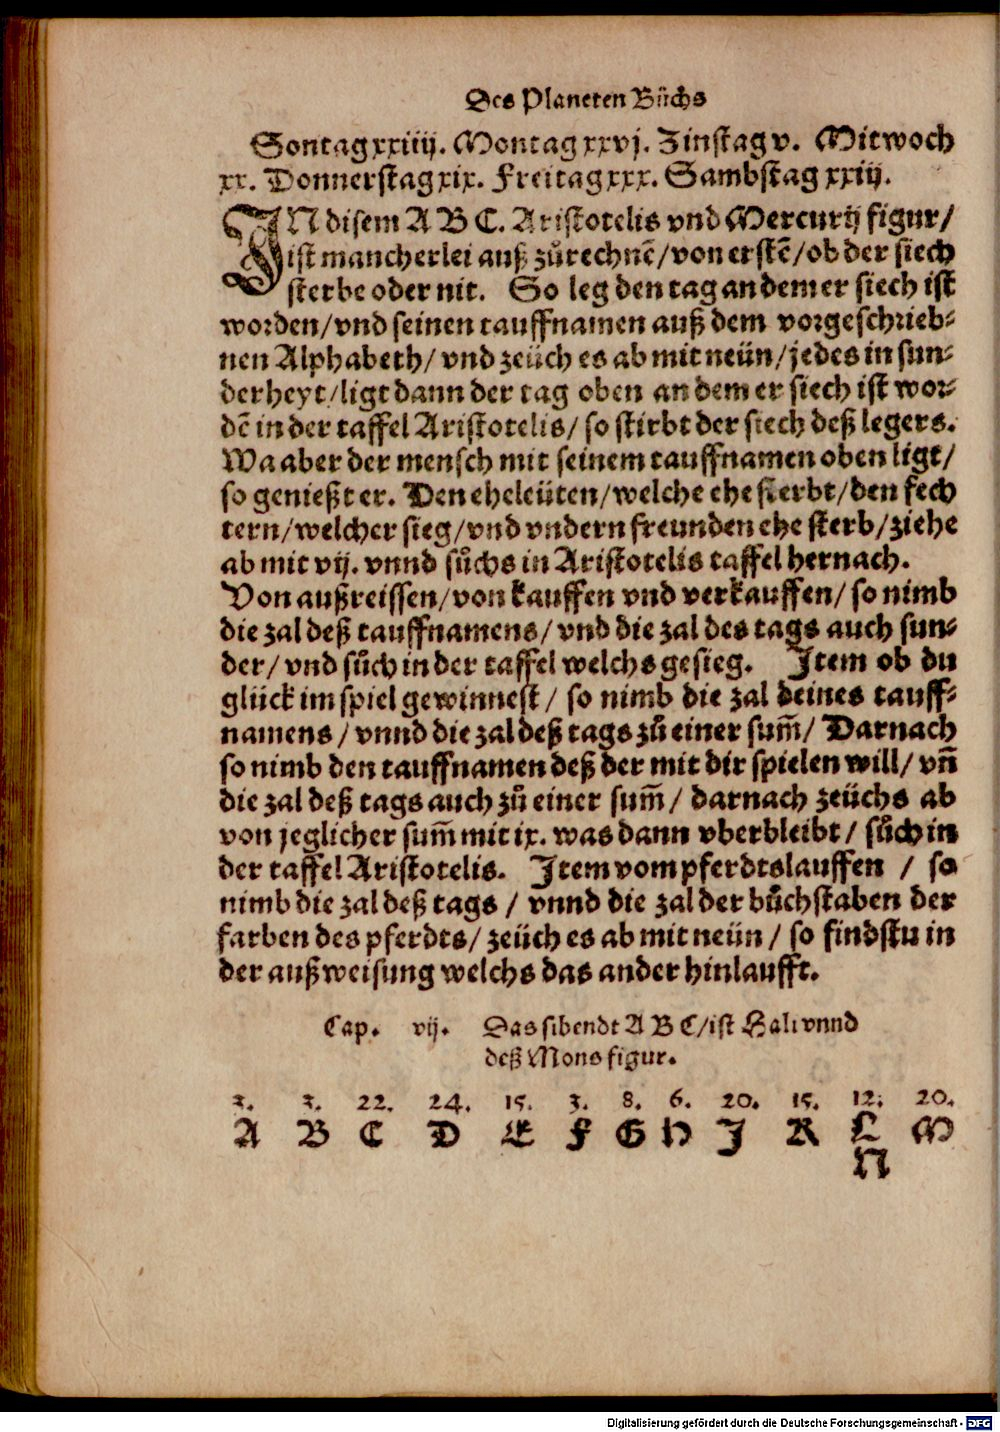 Des Planeten Bůchs
Sontag xxiiij. Montag xxvj. Zinstag v. Mitwoch
xx. Donnerstag xix. Freitag xxx. Sambstag xxiij.
IN disem A B C. Aristotelis vnd Mercurij figur/
ist mancherlei auß zůrechnẽ/von erstẽ/ob der siech
sterbe oder nit. So leg den tag an dem er siech ist
worden/vnd seinen tauffnamen auß dem vorgeschrieb-
nen Alphabeth/ vnd zeüch es ab mit neün/jedes in sun-
derheyt/ligt dann der tag oben an dem er siech ist wor-
dẽ in der taffel Aristotelis/ so stirbt der siech deß legers.
Wa aber der mensch mit seinem tauffnamen oben ligt/
so genießt er. Den eheleüten/welche ehe sterbt/den fech
tern/welcher sieg/vnd vndern freunden ehe sterb/ziehe
ab mit vij. vnnd sůchs in Aristotelis taffel hernach.
Von außreissen/von kauffen vnd verkauffen/ so nimb
die zal deß tauffnamens/ vnd die zal des tags auch sun-
der/ vnd sůch in der taffel welchs gesieg. Item ob du
glück im spiel gewinnest/ so nimb die zal deines tauff-
namens/ vnnd die zal deß tags zů einer sum̃/ Darnach
so nimb den tauffnamen deß der mit dir spielen will/ vñ
die zal deß tags auch zů einer sum̃/ darnach zeüchs ab
von jeglicher sum̃ mit ix. was dann vberbleibt/ sůch in
der taffel Aristotelis. Item vom pferdtslauffen / so
nimb die zal deß tags / vnnd die zal der bůchstaben der
farben des pferdts/ zeüch es ab mit neün/ so findstu in
der außweisung welchs das ander hinlaufft.
Cap. vij. Das sibendt A B C/ist Hali vnnd
deß Mons figur.
2. 3. 22. 24. 15. 3. 8. 6. 20. 15. 12. 20.
A B C D E F G H I K L M
N
Digitalisierung gefördert durch die Deutsche Forschungsgemeinschaft - DFG